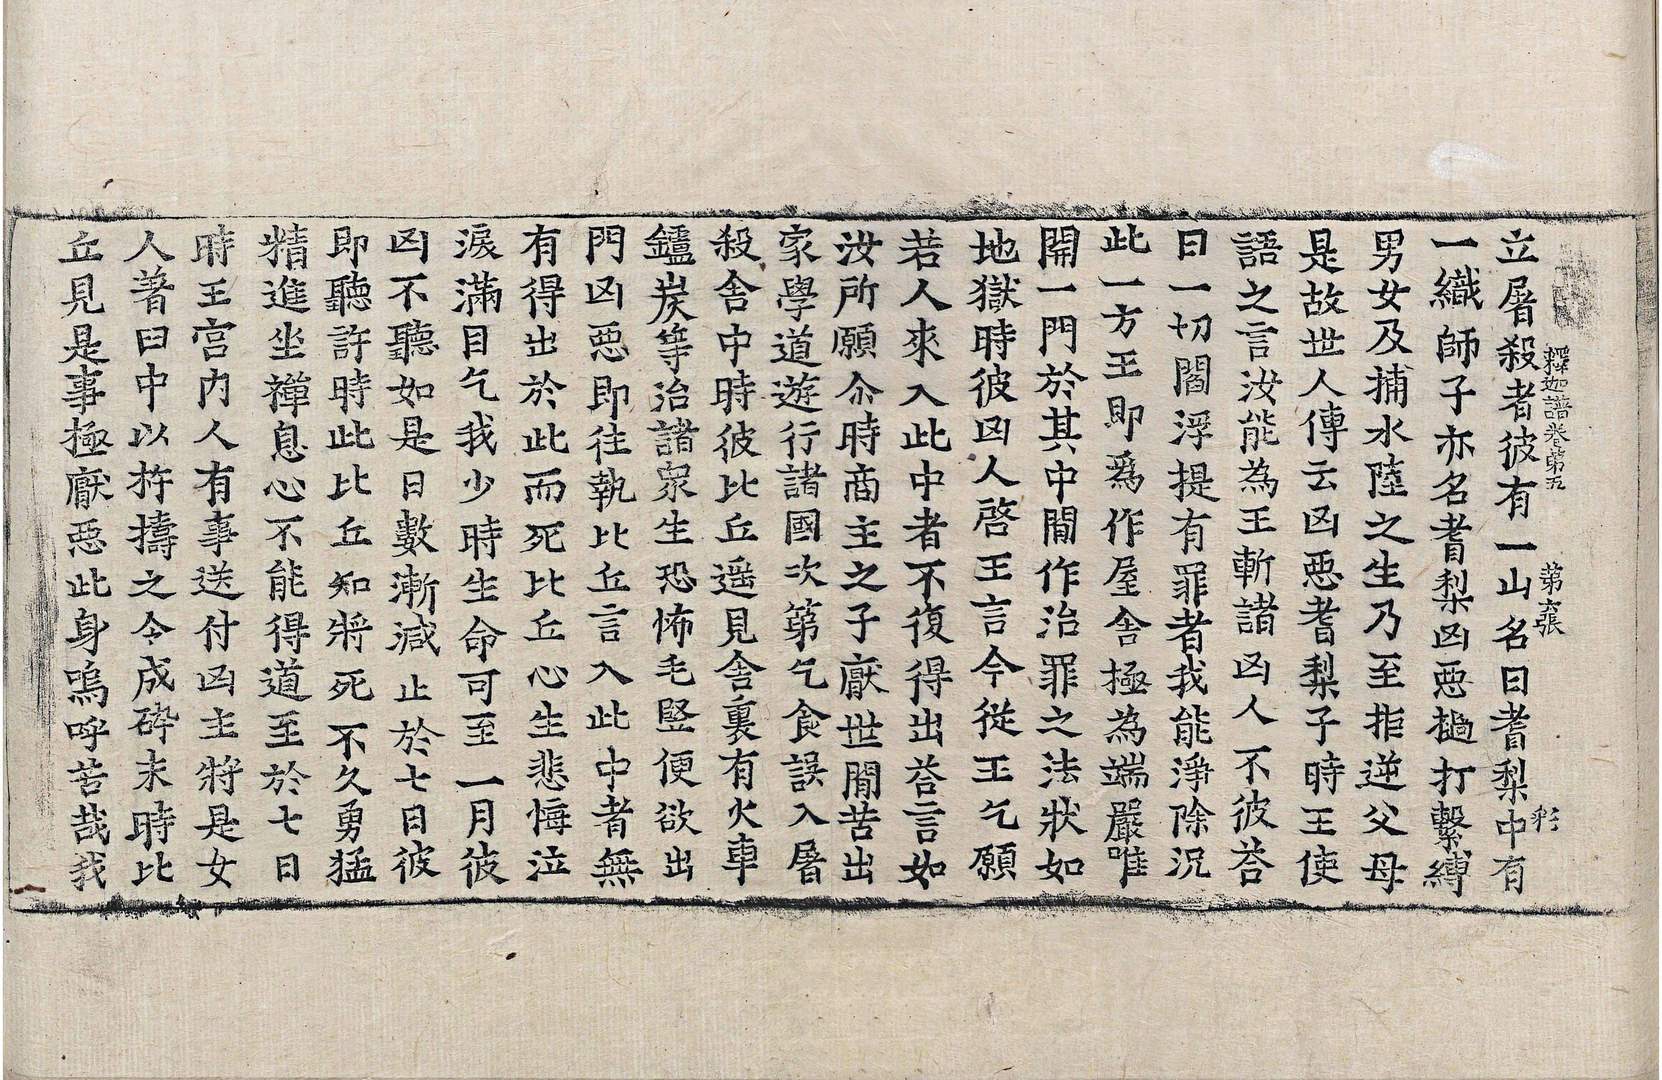 釋迦譜卷第五　第六張　彩
立屠殺者彼有一山名曰耆梨中有
一織師子亦名耆梨凶惡撾打繫縛
男女及捕水陸之生乃至拒逆父母
是故世人傳云凶惡耆梨子時王使
語之言汝能為王斬諸凶人不彼荅
曰一切閻浮提有罪者我能淨除況
此一方王即爲作屋舍極為端嚴唯
開一門於其中閒作治罪之法狀如
地獄時彼凶人啓王言今從王乞願
若人來入此中者不復得出荅言如
汝所願尒時商主之子厭世閒苦出
家學道遊行諸國次第乞食誤入屠
殺舍中時彼比丘遥見舍裏有火車
鑪炭等治諸衆生恐怖毛竪便欲出
門凶惡即往執比丘言入此中者無
有得出於此而死比丘心生悲悔泣
淚滿目乞我少時生命可至一月彼
凶不聽如是日數漸減止於七日彼
即聽許時此比丘知將死不久勇猛
精進坐禪息心不能得道至於七日
時王宮内人有事送付凶主將是女
人著臼中以杵擣之令成碎末時比
丘見是事極厭惡此身嗚呼苦哉我